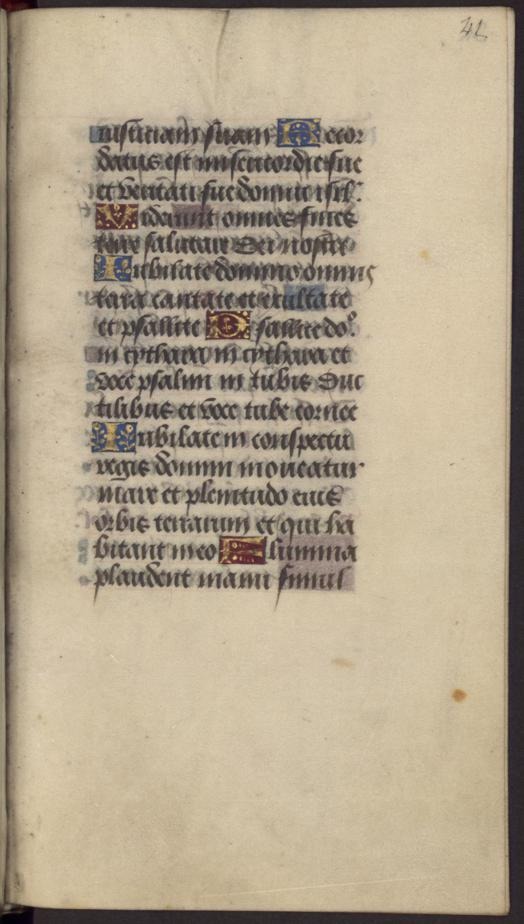 41
iusticiam suam Recor
datus est misericordie sue
et veritati sue domui isrl.
Viderunt omnes fines
terre salutare dei nostri
Iubilate domino omnis
terra cantate et exultate
et psallite Psallite do°
in cythara in cythara et
voce psalmi in tubis duc
tilibus et voce tube cornee
Iubilate in conspectu
regis domini moveatur
mare et plenitudo eius
orbis terrarum et qui ha
bitant in eo Flumina
plaudent manu simul